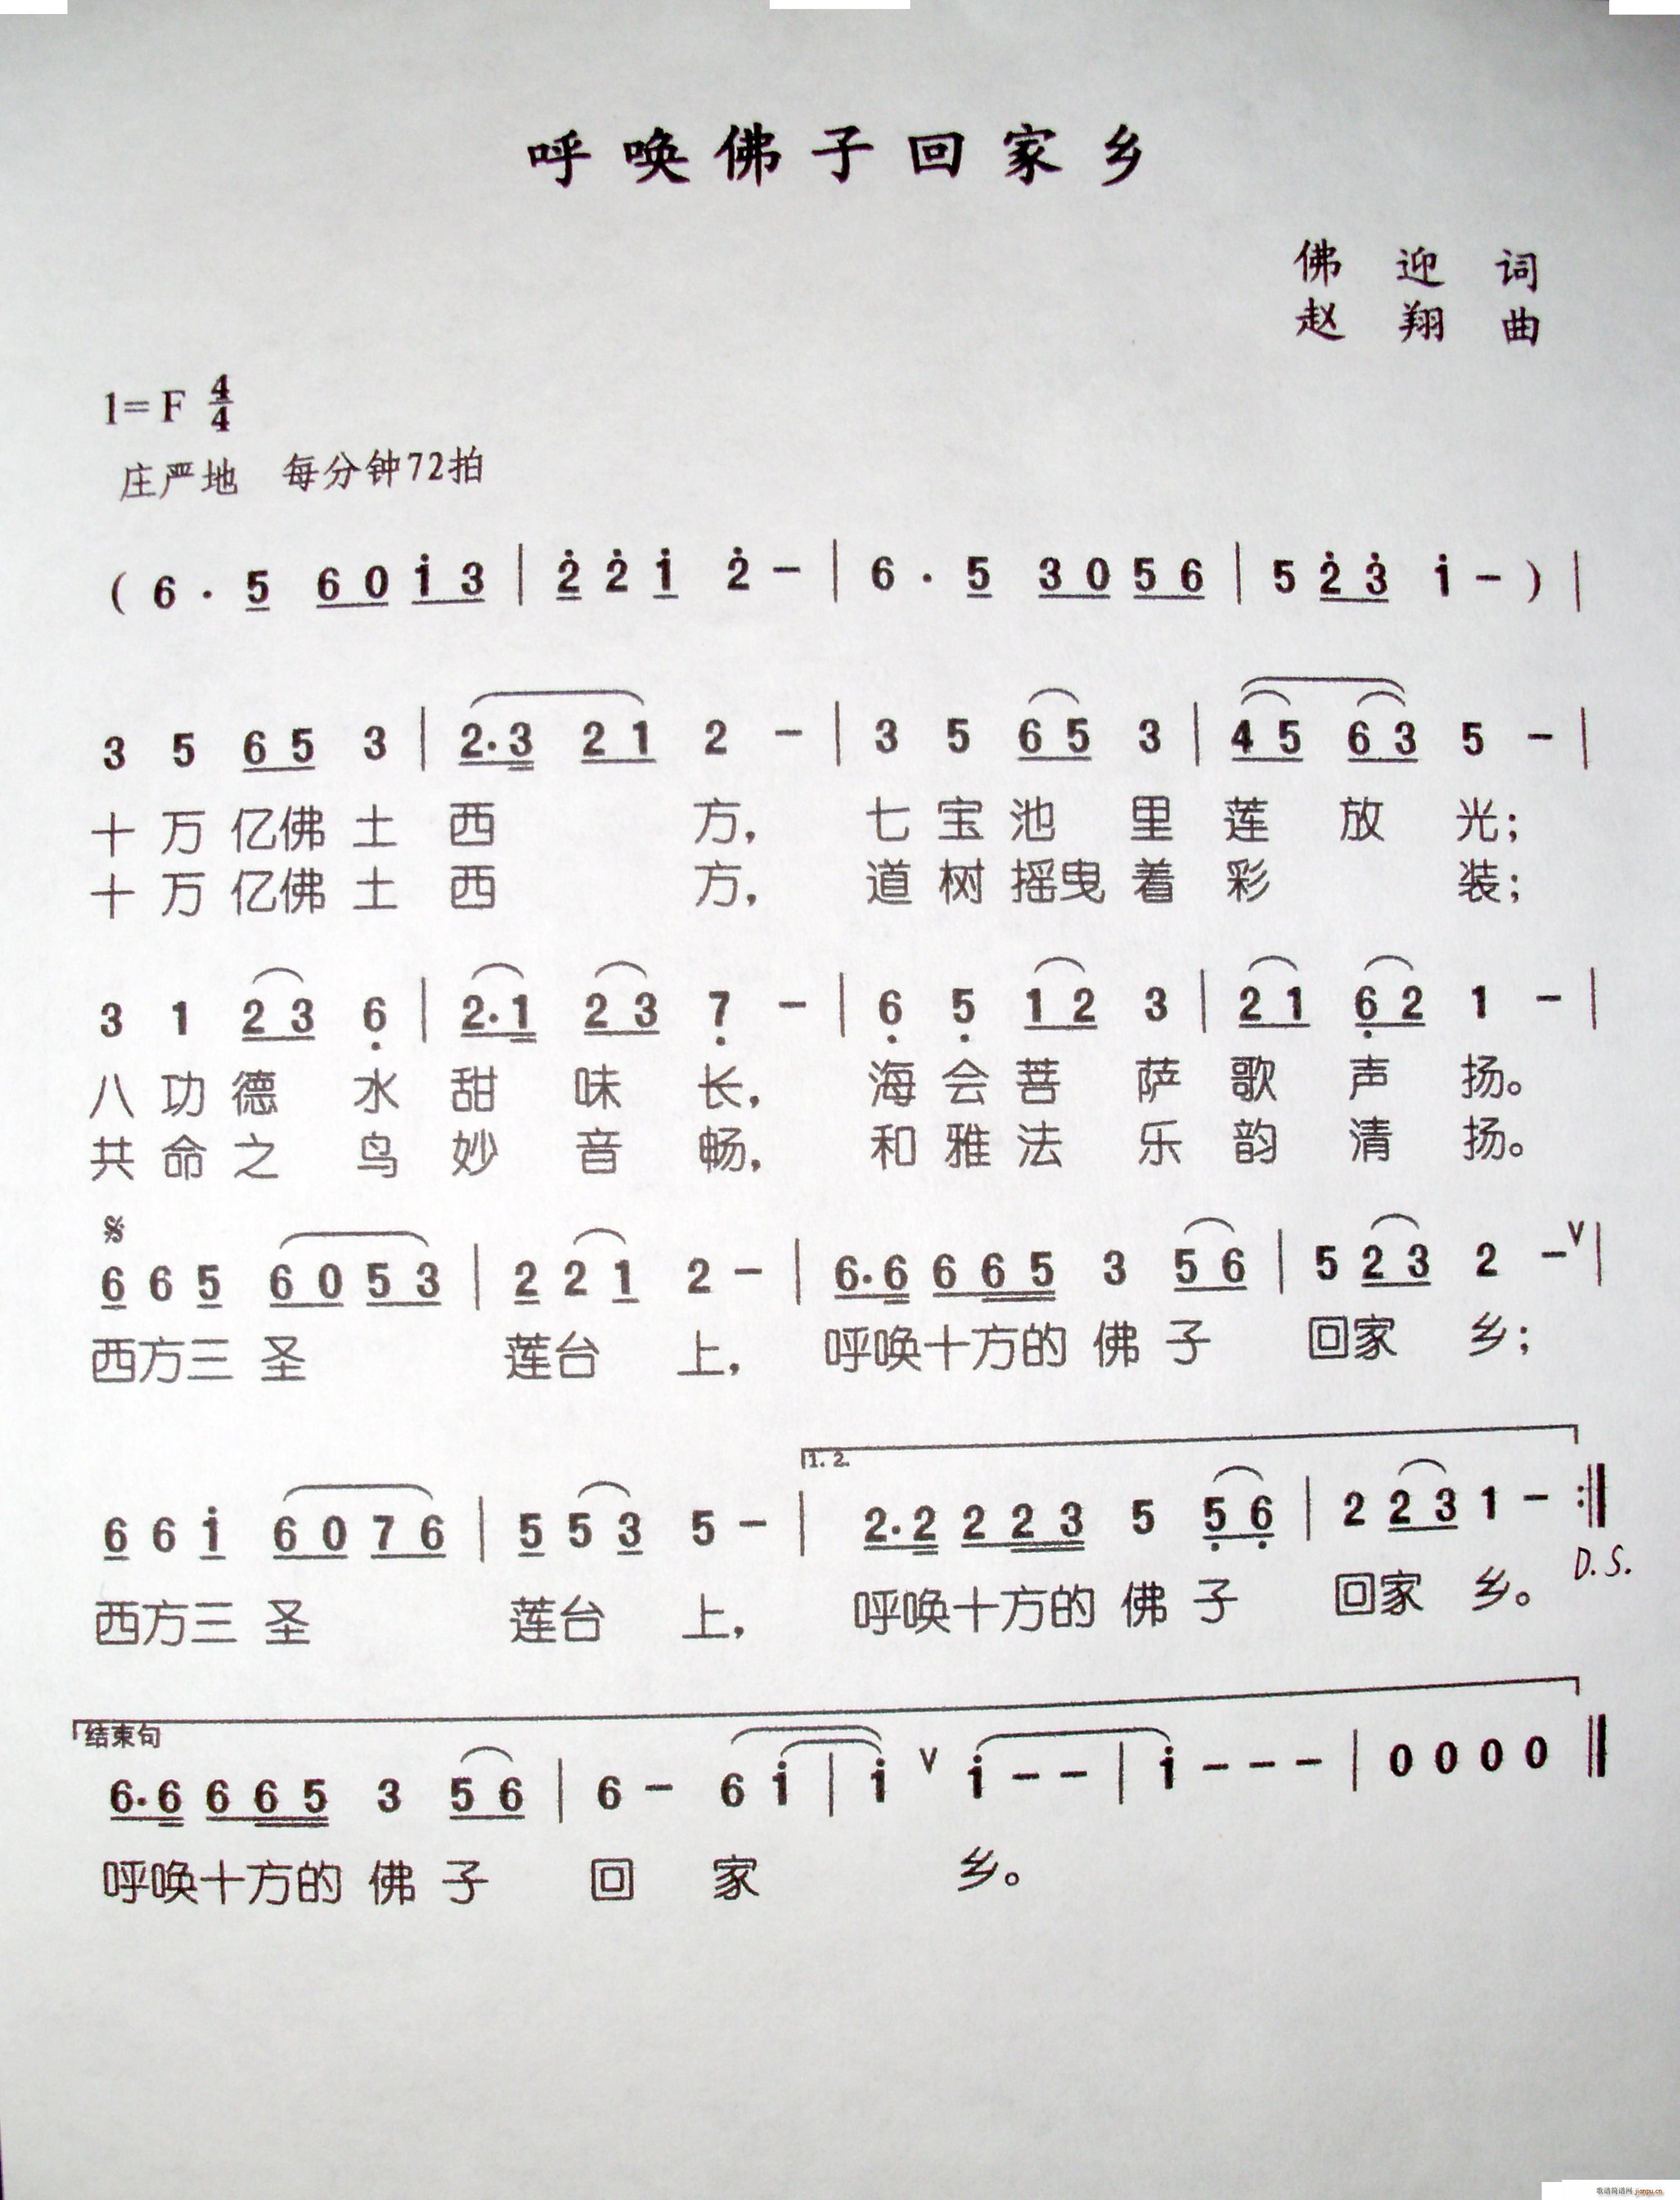 呼唤佛子回家乡
佛 迎 词
赵 翔 曲
1=F 4/4
庄严地 每分钟72拍
( 6 · 5 6 0 i 3 | 2̇ 2̇ i 2̇ - | 6 · 5 3 0 5 6 | 5 2̇ 3̇ i - ) |
3 5 6 5 3 | 2·3 2 1 2 - | 3 5 6 5 3 | 4 5 6 3 5 - |
十万亿佛土西方，七宝池里莲放光；
十万亿佛土西方，道树摇曳着彩装；
3 1 2 3 6̣ | 2·1 2 3 7̣ - | 6̣ 5̣ 1 2 3 | 2 1 6̣ 2 1 - |
八功德水甜味长，海会菩萨歌声扬。
共命之鸟妙音畅，和雅法乐韵清扬。
𝄋
6 6 5 6 0 5 3 | 2 2 1 2 - | 6·6 6 6 5 3 5 6 | 5 2 3 2 - V |
西方三圣莲台上，呼唤十方的佛子回家乡；
1. 2.
6 6 i 6 0 7 6 | 5 5 3 5 - | 2·2 2 2 3 5 5̣ 6̣ | 2 2 3 1 - :‖
D.S.
西方三圣莲台上，呼唤十方的佛子回家乡。
结束句
6·6 6 6 5 3 5 6 | 6 - 6 i | i V i - - | i - - - | 0 0 0 0 ‖
呼唤十方的佛子回家乡。
歌谱简谱网 jianpu.cn